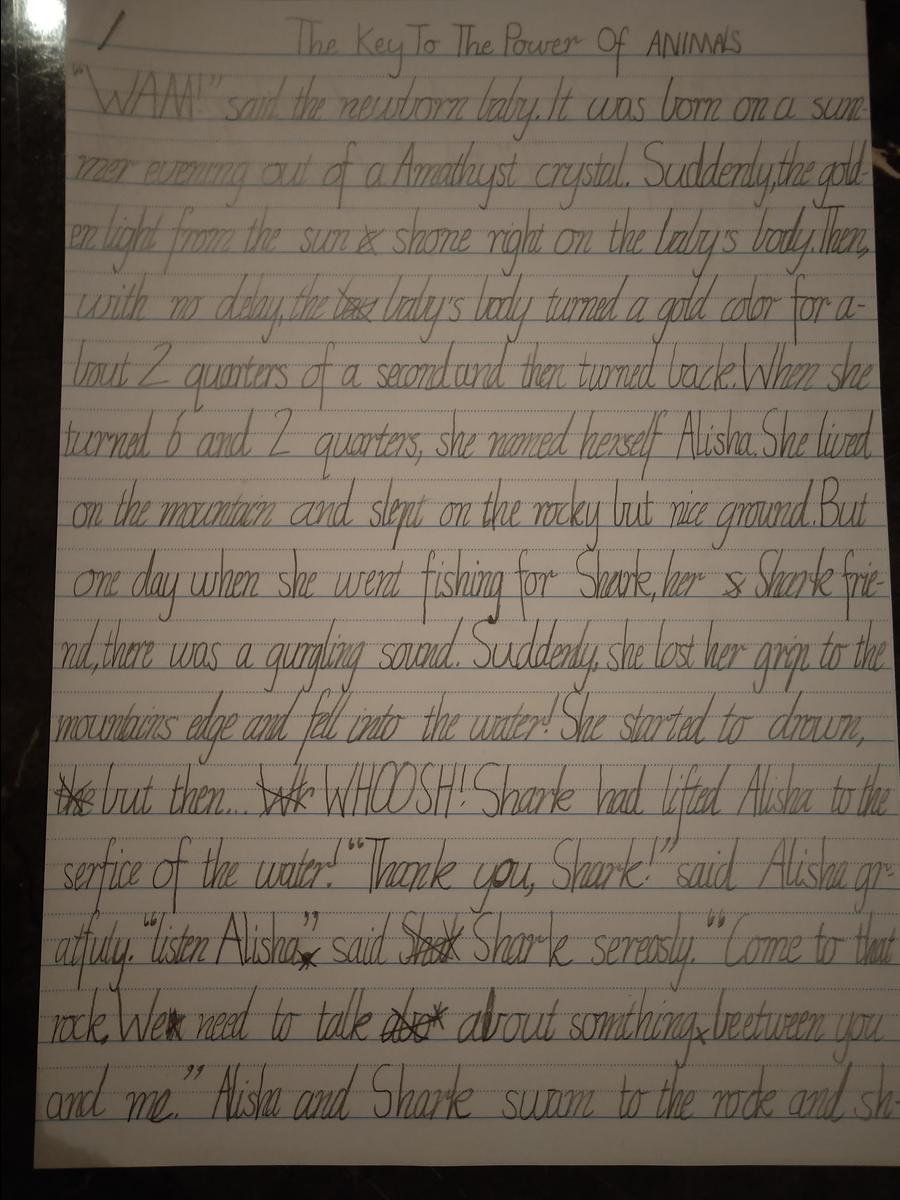 1 The Key To The Power Of ANIMALS
"WAM!" said the newborn baby. It was born on a sum-
mer evening out of a Amathyst crystal. Suddenly, the gold-
en light from the sun shone right on the baby's body. Then,
with no delay, the baby's body turned a gold color for a-
bout 2 quarters of a second and then turned back. When she
turned 6 and 2 quarters, she named herself Alisha. She lived
on the mountain and slept on the rocky but nice ground. But
one day when she went fishing for Shark, her Shark frie-
nd, there was a gurgling sound. Suddenly, she lost her grip to the
mountains edge and fell into the water! She started to drown,
but then... WHOOSH! Shark had lifted Alisha to the
serfice of the water! "Thank you, Shark!" said Alisha gr-
atfuly. "listen Alisha" said Shark sereosly. "Come to that
rock. We need to talk about somthing beetween you
and me." Alisha and Shark swam to the rock and sh-